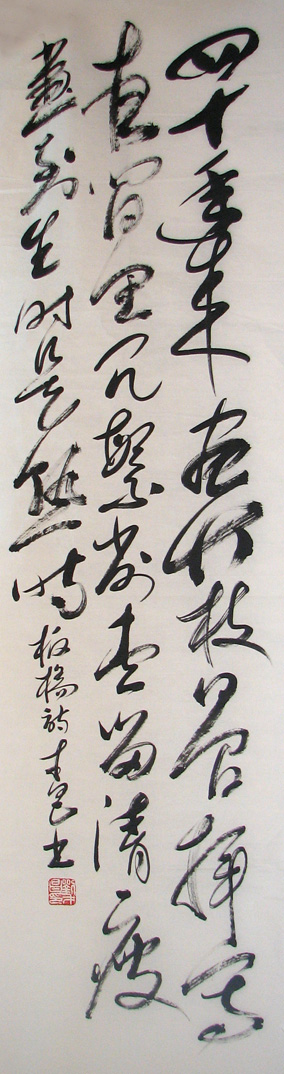 四十年来画竹枝日间挥写
夜间思冗繁削尽留清瘦
畫到生时是熟时 板橋詩 书